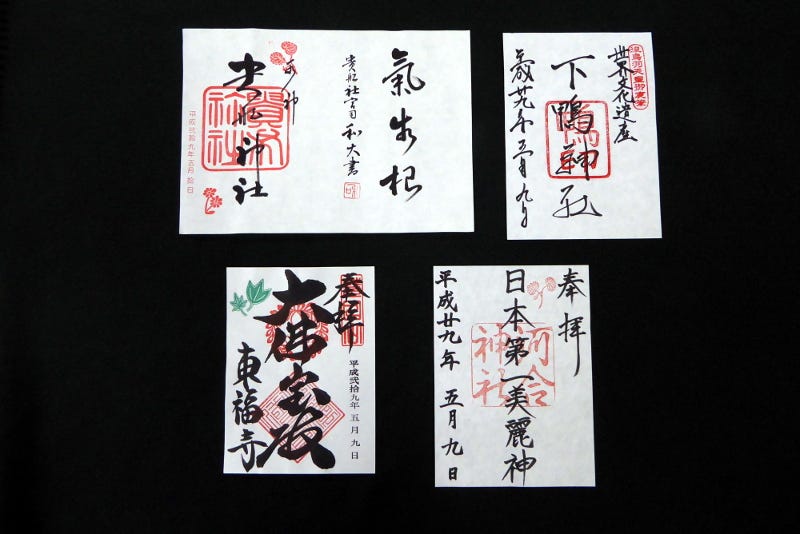 氣生根
貴船社宮司 和大書
貴船神社
平成弐拾九年五月拾日
世界文化遺産
下鴨神社
平成廿九年五月九日
奉拝
大佛宝殿
平成弐拾九年五月九日
東福寺
奉拝
日本第一美麗神
河合神社
平成廿九年 五月九日